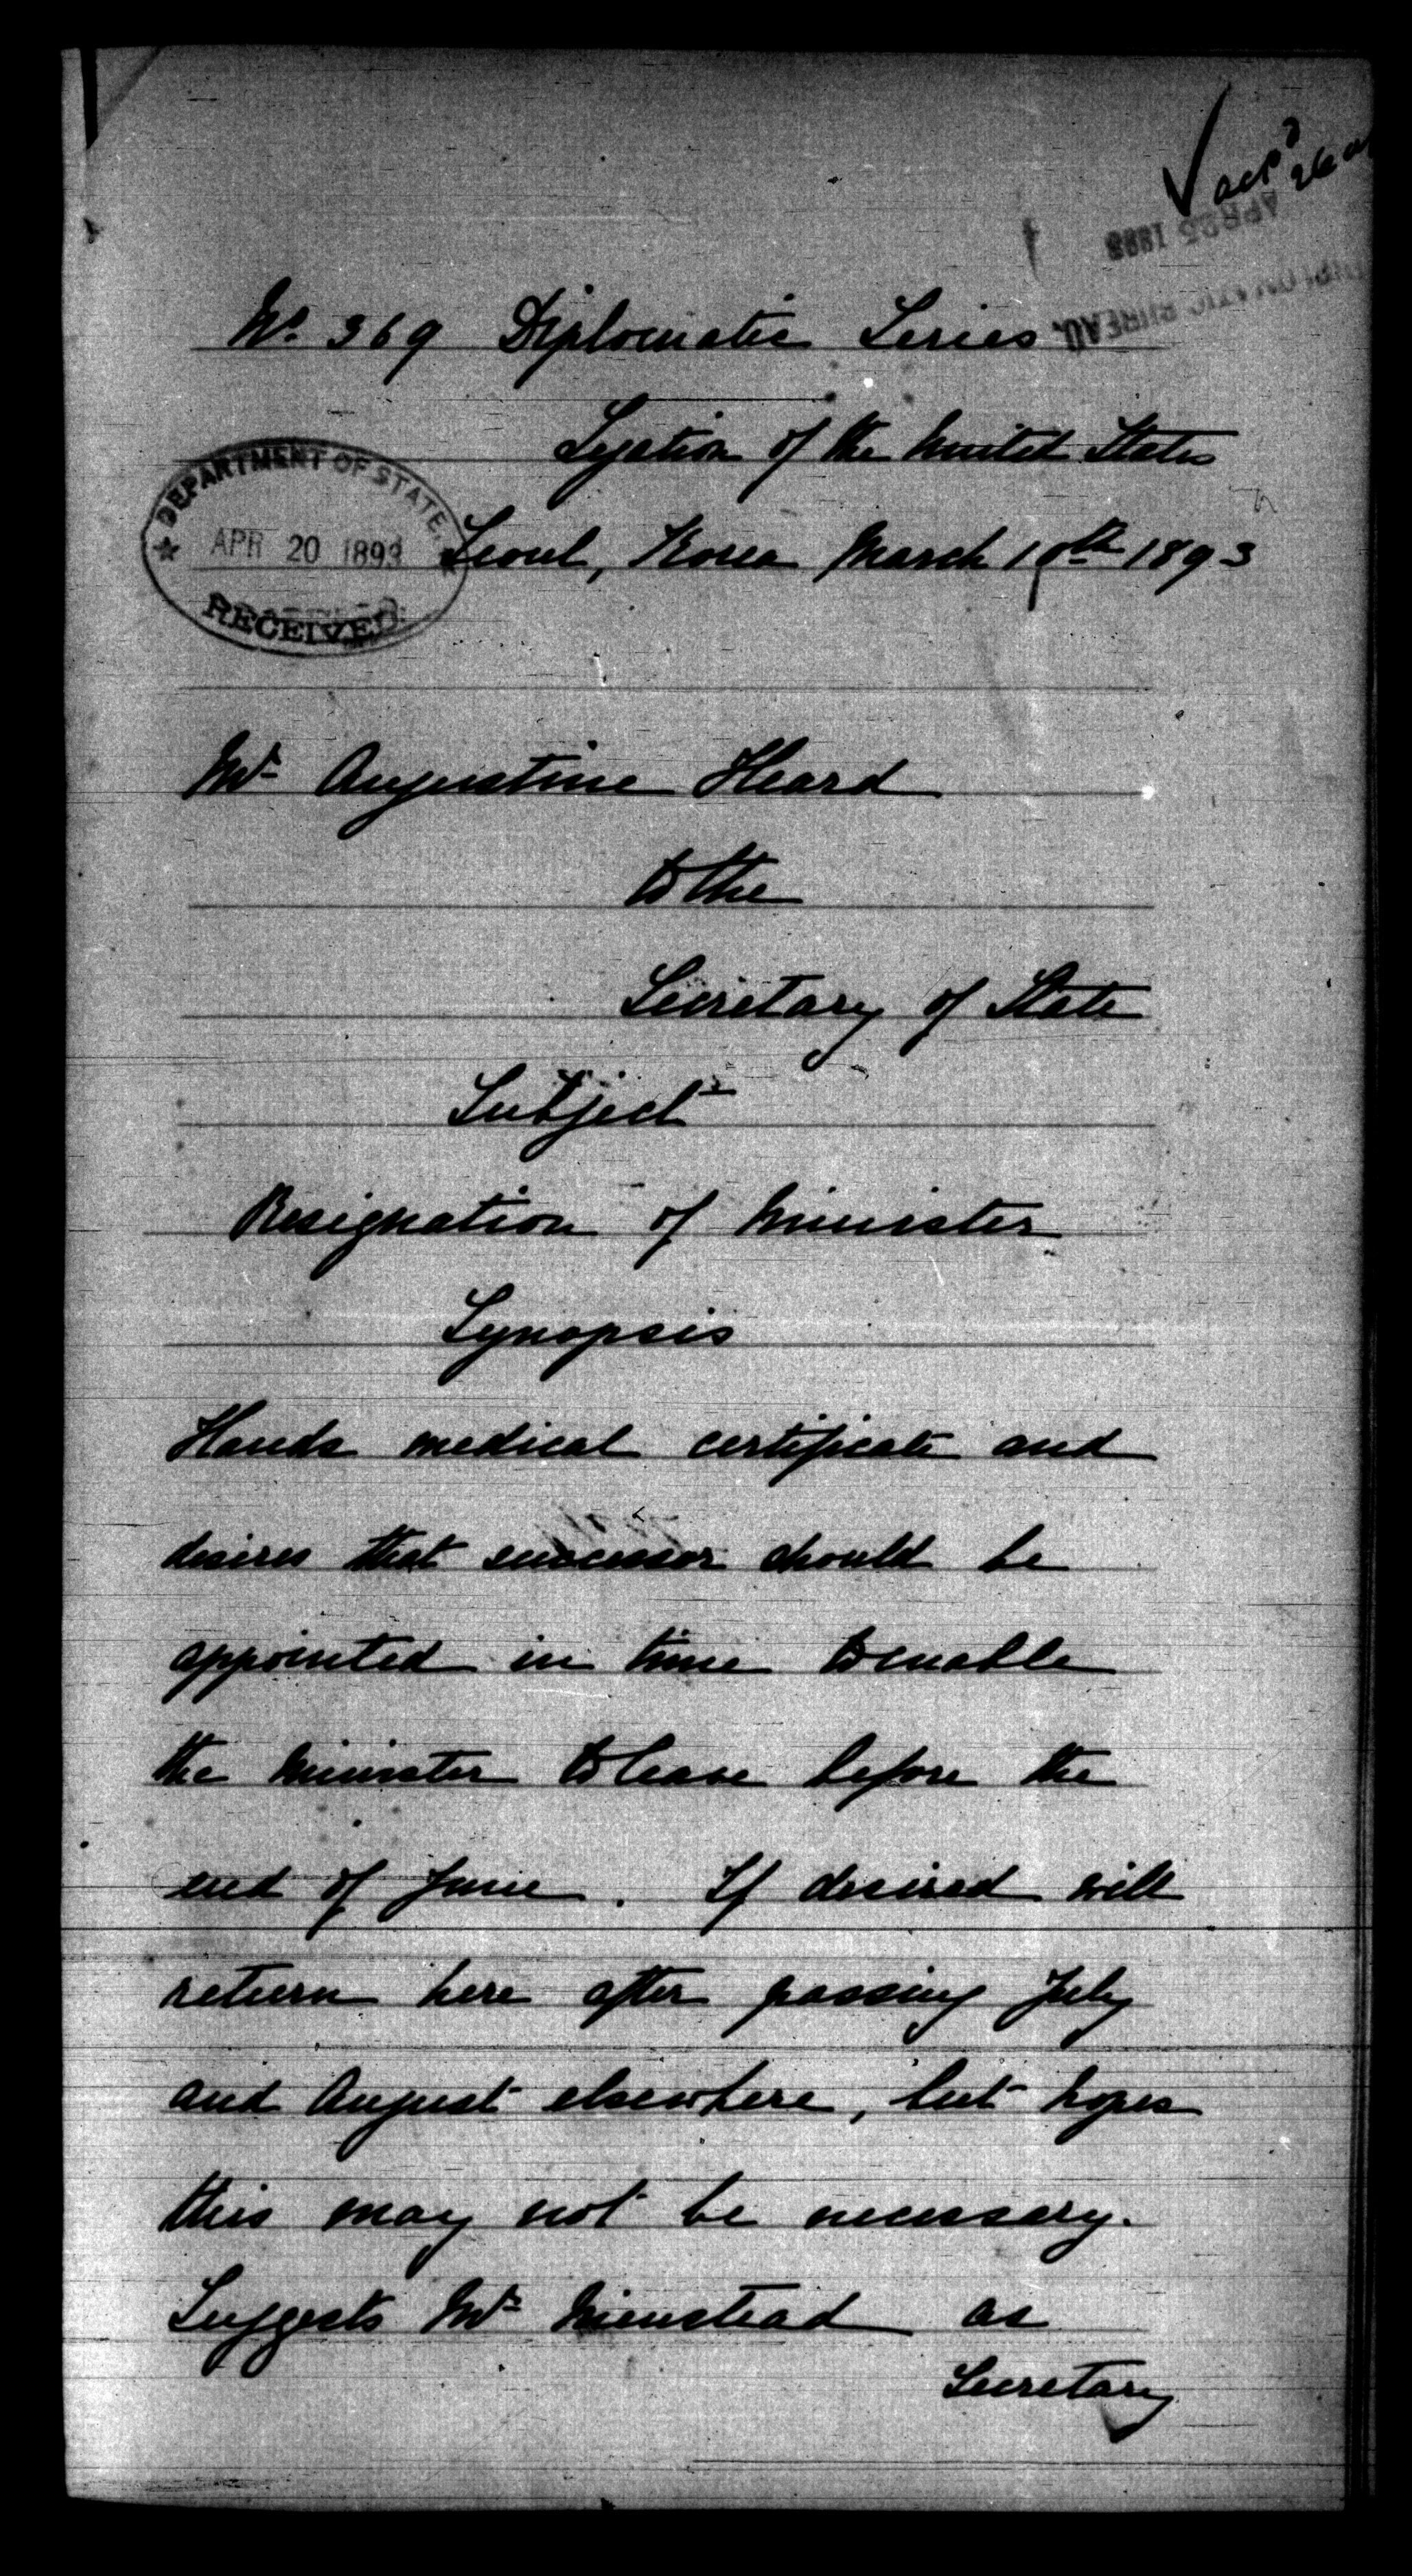 ack'd 26
APR 25 1893
DIPLOMATIC BUREAU.
No. 369 Diplomatic Series
Legation of the United States
DEPARTMENT OF STATE,
APR 20 1893
RECEIVED
Seoul, Korea March 10th 1893
Mr Augustine Heard
to the
Secretary of State
Subject
Resignation of Minister
Synopsis
Hands medical certificate and
desires that successor should be
appointed in time to enable
the Minister to leave before the
end of June. If desired will
return here after passing July
and August elsewhere, but hopes
this may not be necessary.
Suggests Mr as
Secretary